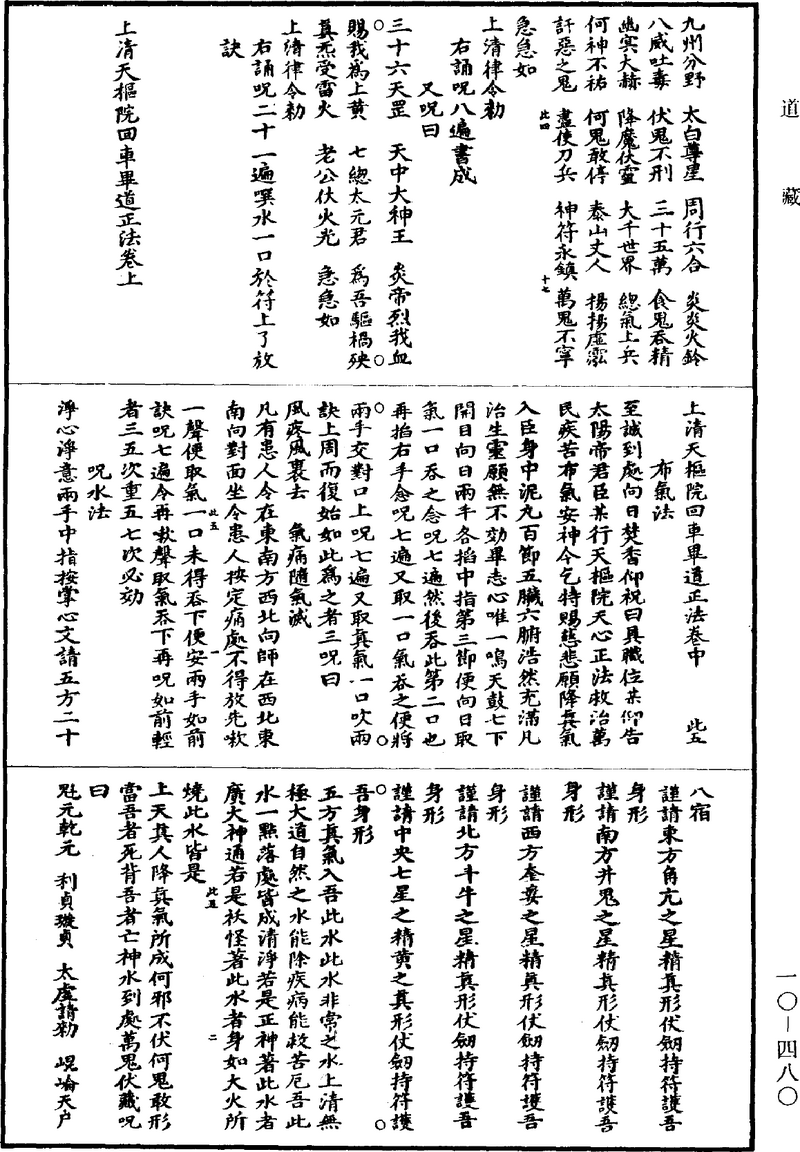 道藏
一〇—四八〇
九州分野　太白尊星　周行六合　炎炎火鈴
八威吐毒　伏鬼不刑　三十五萬　食鬼吞精
幽冥大赫　降魔伏靈　大千世界　總氣上兵
何神不祐　何鬼敢停　泰山丈人　揚揚虛濛
訐惡之鬼　盡使刀兵　神符永鎮　萬鬼不寧
此四　十七
急急如
上清律令勑
右誦呪八遍書成
又呪曰
三十六天罡　天中大神王　炎帝烈我血
賜我為上黃　七總太元君　為吾驅禍殃
真炁受雷火　老公伏火光　急急如
上清律令勑
右誦呪二十一遍噀水一口於符上了放
訣
上清天樞院回車畢道正法卷上
上清天樞院回車畢道正法卷中　此五
布氣法
至誠到處向日焚香仰祝曰具職位某仰告
太陽帝君臣某行天樞院天心正法救治萬
民疾苦布氣安神今乞特賜慈悲願降真氣
入臣身中泥丸百節五臟六腑浩然充滿凡
治生靈願無不効畢志心唯一鳴天鼓七下
開目向日兩手各掐中指第三節便向日取
氣一口吞之念呪七遍然後吞此第二口也
再掐右手念呪七遍又取一口氣吞之便將
兩手交對口上呪七遍又取真氣一口吹兩
訣上周而復始如此為之者三呪曰
風疼風裏去　氣痛隨氣滅
凡有患人令在東南方西北向師在西北東
南向對面坐令患人按定痛處不得放先嗽
此五　一
一聲便取氣一口未得吞下便安兩手如前
訣呪七遍令再嗽聲取氣吞下再呪如前輕
者三五次重五七次必効
呪水法
淨心淨意兩手中指按掌心文請五方二十
八宿
謹請東方角亢之星精真形伏劒持符護吾
身形
謹請南方井鬼之星精真形伏劒持符護吾
身形
謹請西方奎婁之星精真形伏劒持符護吾
身形
謹請北方斗牛之星精真形伏劒持符護吾
身形
謹請中央七星之精黃之真形伏劒持符護
吾身形
五方真氣入吾此水此水非常之水上清無
極大道自然之水能除疾病能救苦厄吾此
水一點落處皆成清淨若是正神著此水者
廣大神通若是祅怪著此水者身如大火所
此五　二
燒此水皆是
上天真人降真氣所成何邪不伏何鬼敢形
當吾者死背吾者亡神水到處萬鬼伏藏呪
曰
魁元乾元　利貞璇貞　太虛請勑　崐崘天户